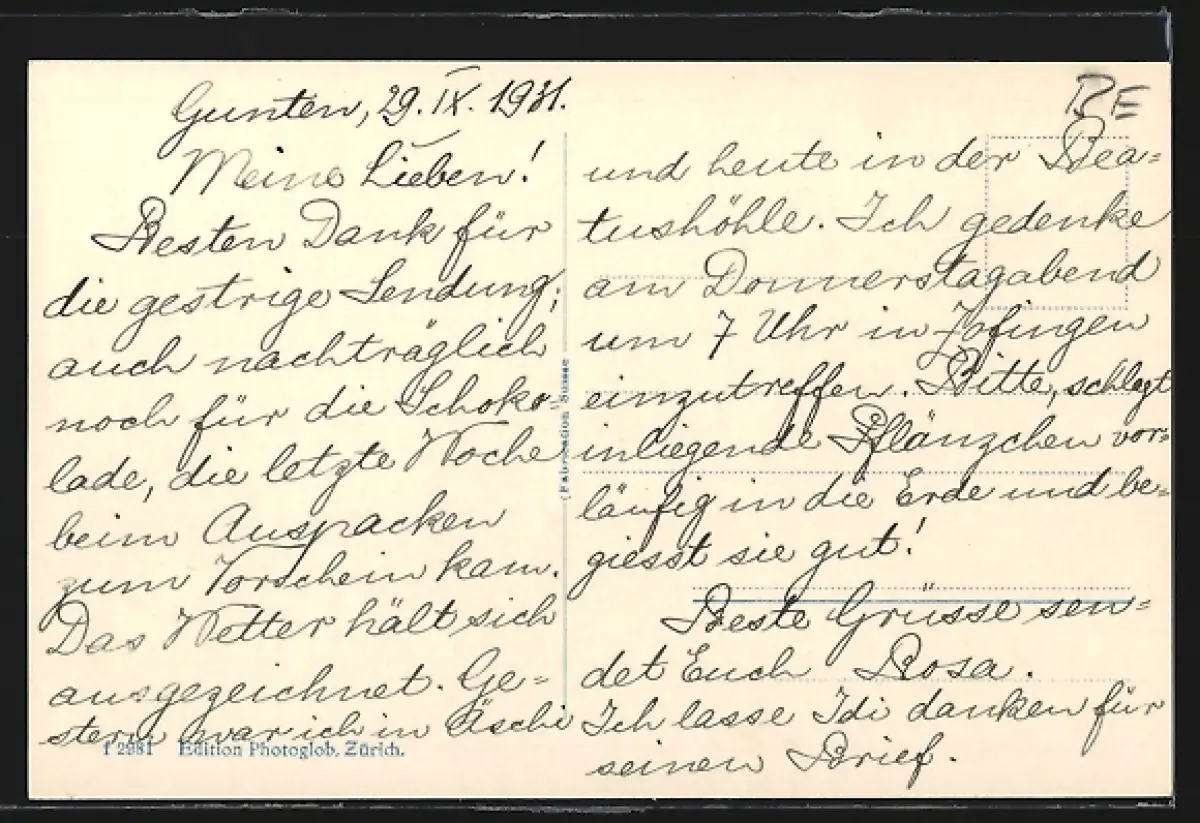 Gunten, 29. IX. 1931.
Meine Lieben!
Besten Dank für
die gestrige Sendung;
auch nachträglich
noch für die Schoko=
lade, die letzte Woche
beim Auspacken
zum Vorschein kam.
Das Wetter hält sich
ausgezeichnet. Ge=
stern war ich in Äschi
f 2981 Edition Photoglob, Zürich.
(Fabrication Suisse
BE
und heute in der Bea=
tushöhle. Ich gedenke
am Donnerstagabend
um 7 Uhr in Zofingen
einzutreffen. Bitte, schlagt
inliegende Pflänzchen vor=
läufig in die Erde und be=
giesst sie gut!
Beste Grüsse sen=
det Euch Rosa.
Ich lasse Idi danken für
seinen Brief.